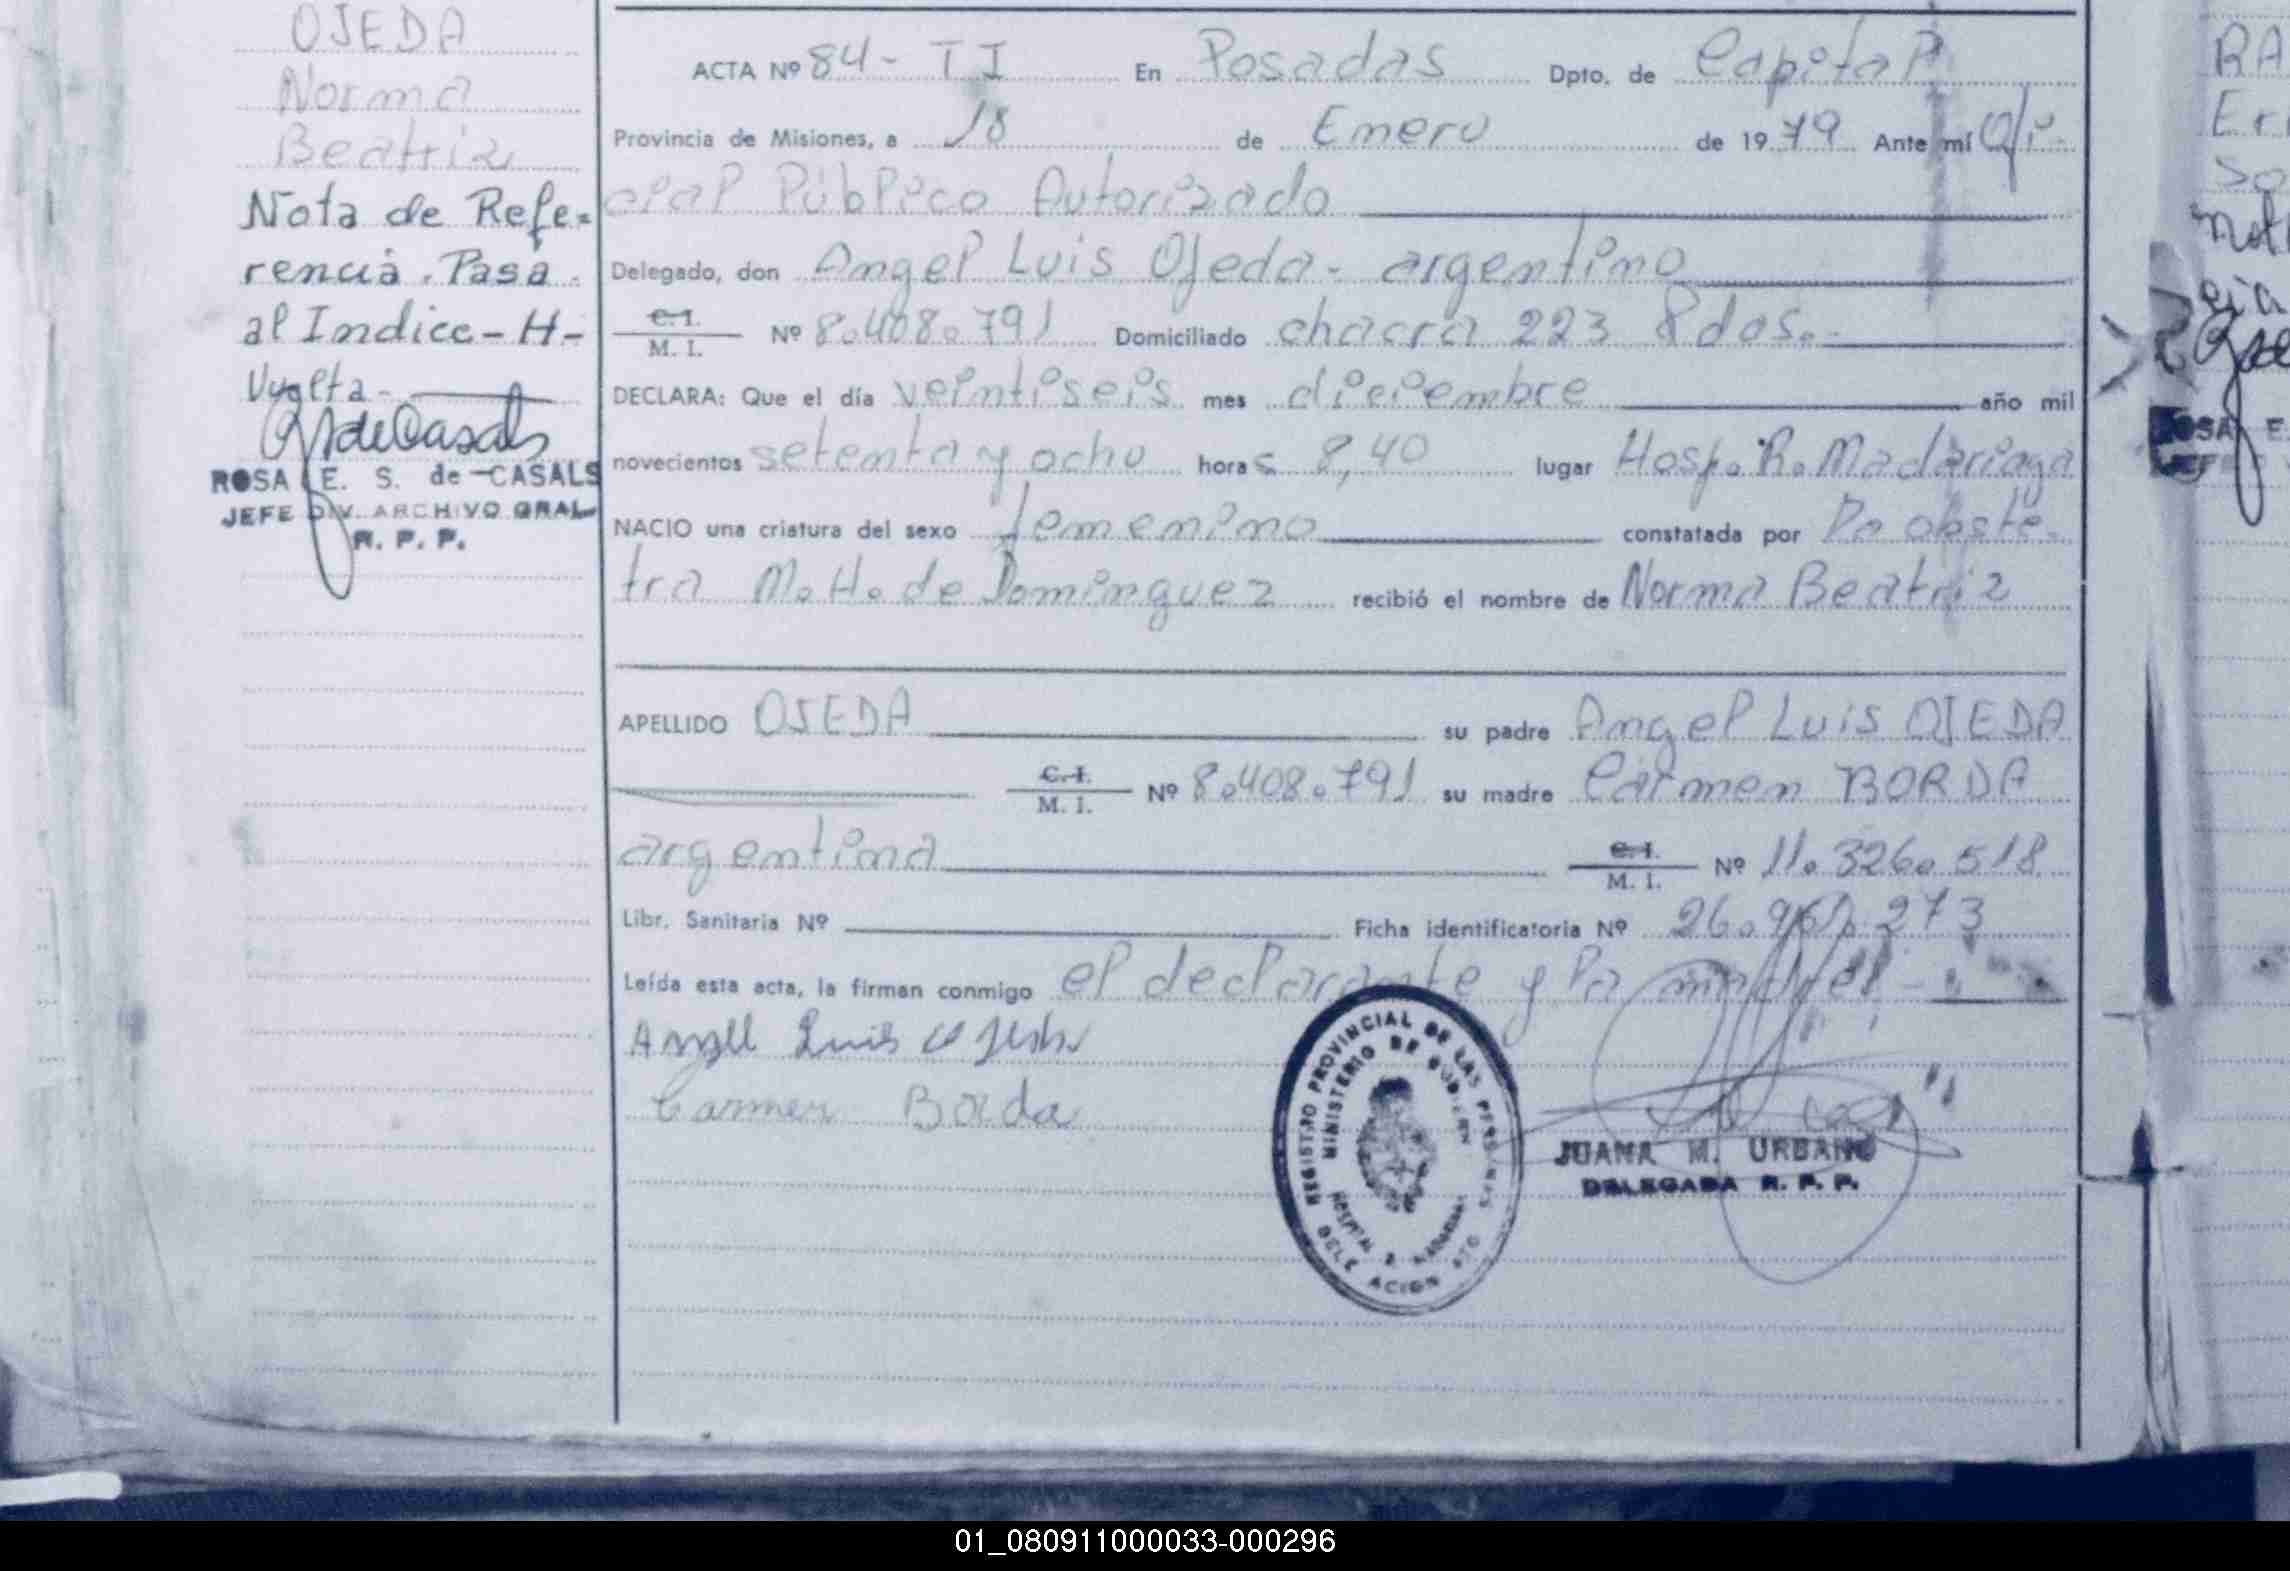 OJEDA
Norma
Beatriz
Nota de Refe=
rencia. Pasa
al Indice - H -
Vuelta -
ROSA E. S. de CASALS
JEFE DIV. ARCHIVO GRAL
R. P. P.
ACTA Nº 84 - TI En Posadas Dpto. de Capital
Provincia de Misiones, a 18 de Enero de 1979 Ante mí Ofi-
cial Público Autorizado
Delegado, don Angel Luis Ojeda - argentino
C. I. / M. I. Nº 8.408.791 Domiciliado chacra 223 Pdas.
DECLARA: Que el día veintiseis mes diciembre año mil
novecientos setenta y ocho horas 8,40 lugar Hosp. R. Madariaga
NACIO una criatura del sexo femenino constatada por la obste-
tra M. H. de Dominguez recibió el nombre de Norma Beatriz
APELLIDO OJEDA su padre Angel Luis OJEDA
C. I. / M. I. Nº 8.408.791 su madre Carmen BORDA
argentina C. I. / M. I. Nº 11.326.518
Libr. Sanitaria Nº Ficha identificatoria Nº 26.961.273
Leída esta acta, la firman conmigo el declarante y la madre! -
Angel Luis Ojeda
Carmen Borda
REGISTRO PROVINCIAL DE LAS PERSONAS
MINISTERIO DE GOBIERNO
HOSPITAL R. MADARIAGA
DELEGACION
JUANA M. URBANO
DELEGADA R. P. P.
RA
Er
So
Not
cia
ROSA E.
JEFE
01_080911000033-000296